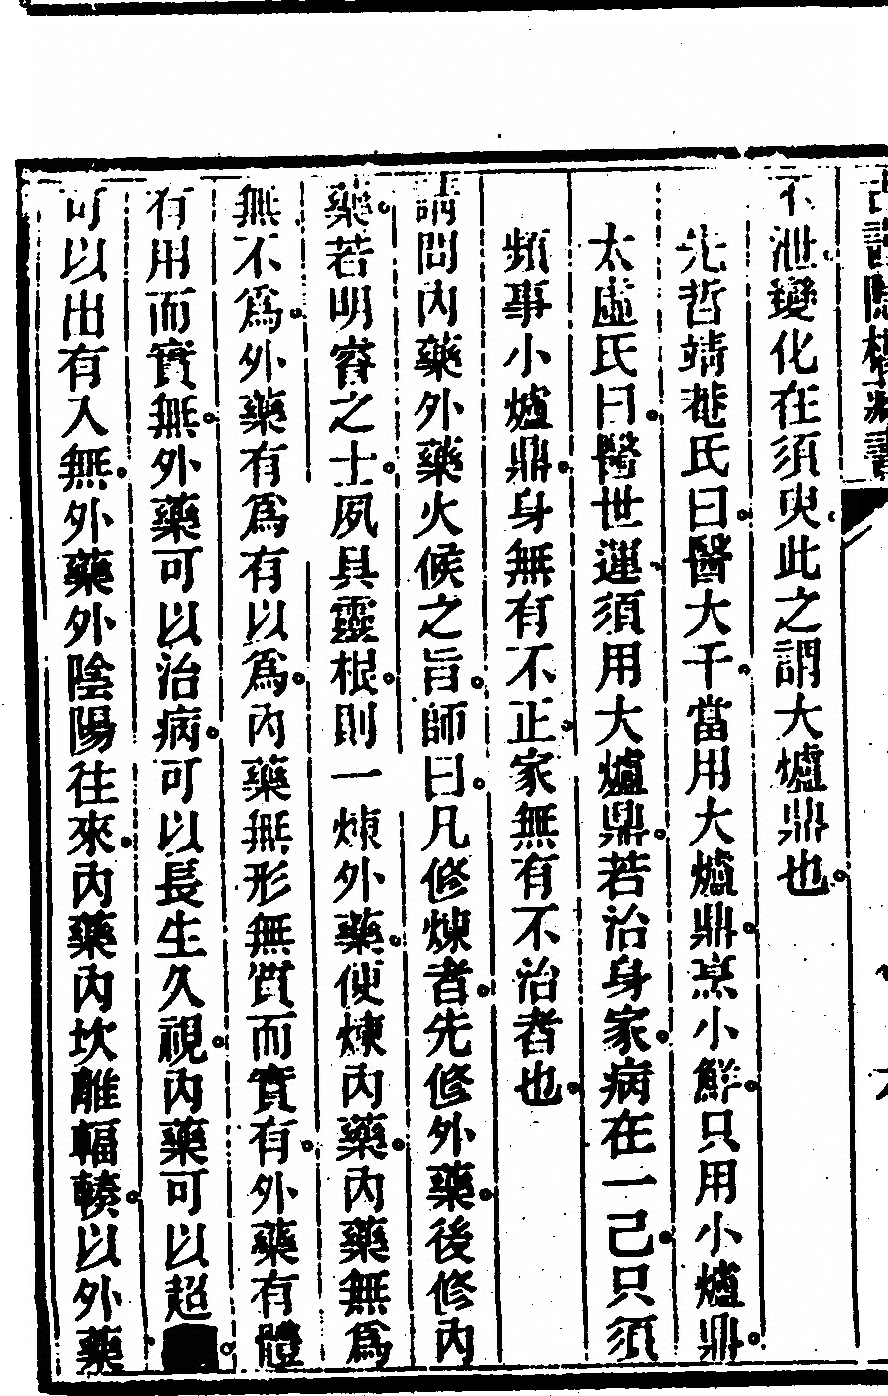 不泄。變化在須臾。此之謂大爐鼎也。
先哲靖菴氏曰。醫大千。當用大爐鼎。烹小鮮。只用小爐鼎。
太虛氏曰。醫世運。須用大爐鼎。若治身家。病在一己。只須
頻事小爐鼎。身無有不正。家無有不治者也。
請問內藥外藥火候之旨。師曰。凡修煉者。先修外藥。後修內
藥。若明睿之士。夙具靈根。則一煉外藥。便煉內藥。內藥無爲
無不爲。外藥有爲有以爲。內藥無形無質而實有。外藥有體
有用而實無。外藥可以治病。可以長生久視。內藥可以超。
可以出有入無。外藥外陰陽往來。內藥內坎離輻輳。以外藥